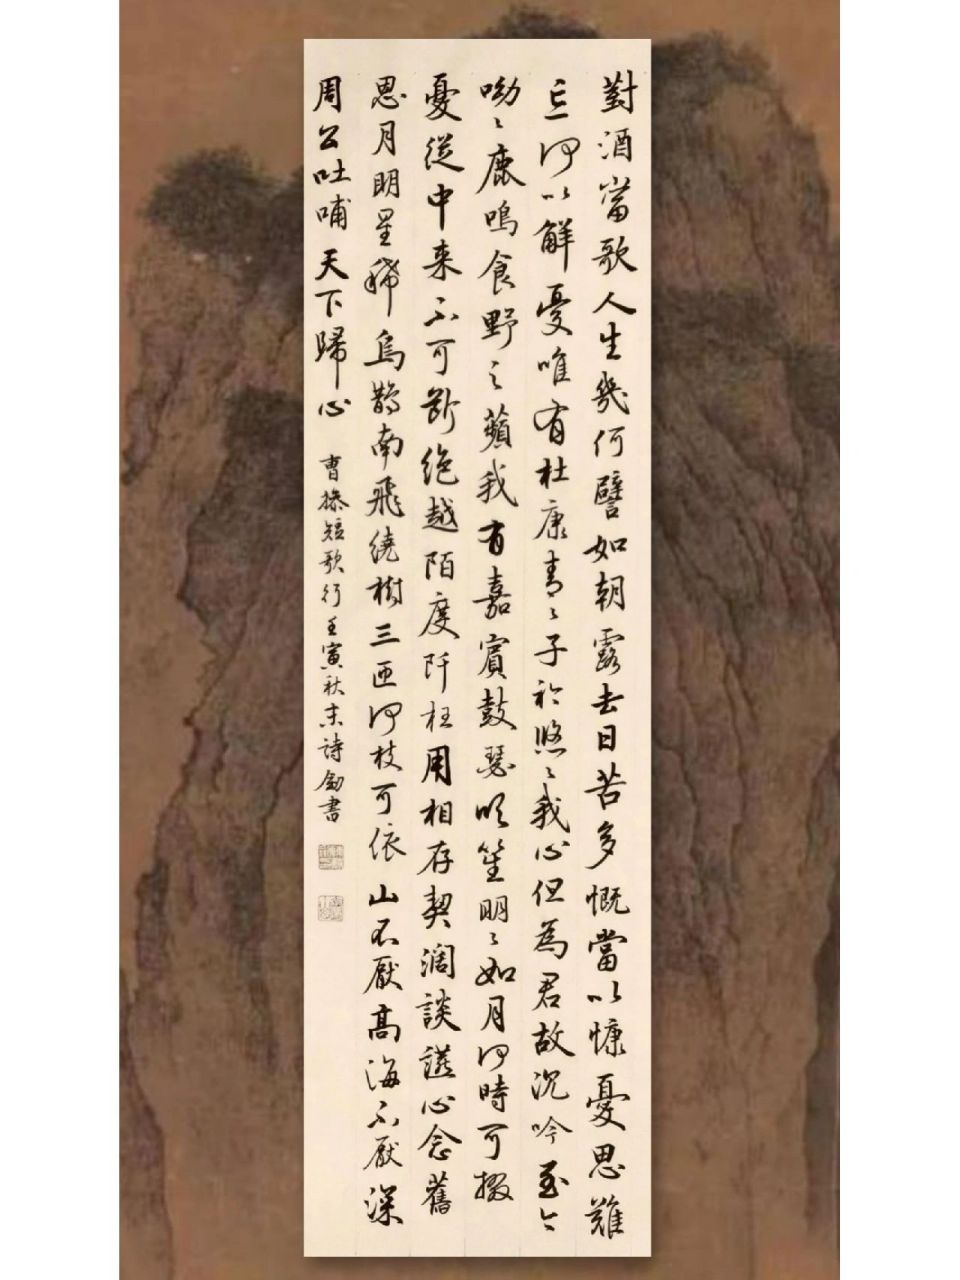 對酒當歌人生幾何譬如朝露去日苦多慨當以慷憂思難
忘何以解憂唯有杜康青〻子衿悠〻我心但為君故沉吟至今
呦〻鹿鳴食野之蘋我有嘉賓鼓瑟吹笙明〻如月何時可掇
憂從中来不可斷絶越陌度阡枉用相存契闊談讌心念舊
恩月明星稀烏鵲南飛繞樹三匝何枝可依山不厭高海不厭深
周公吐哺天下歸心 曹操短歌行壬寅秋末詩劍書